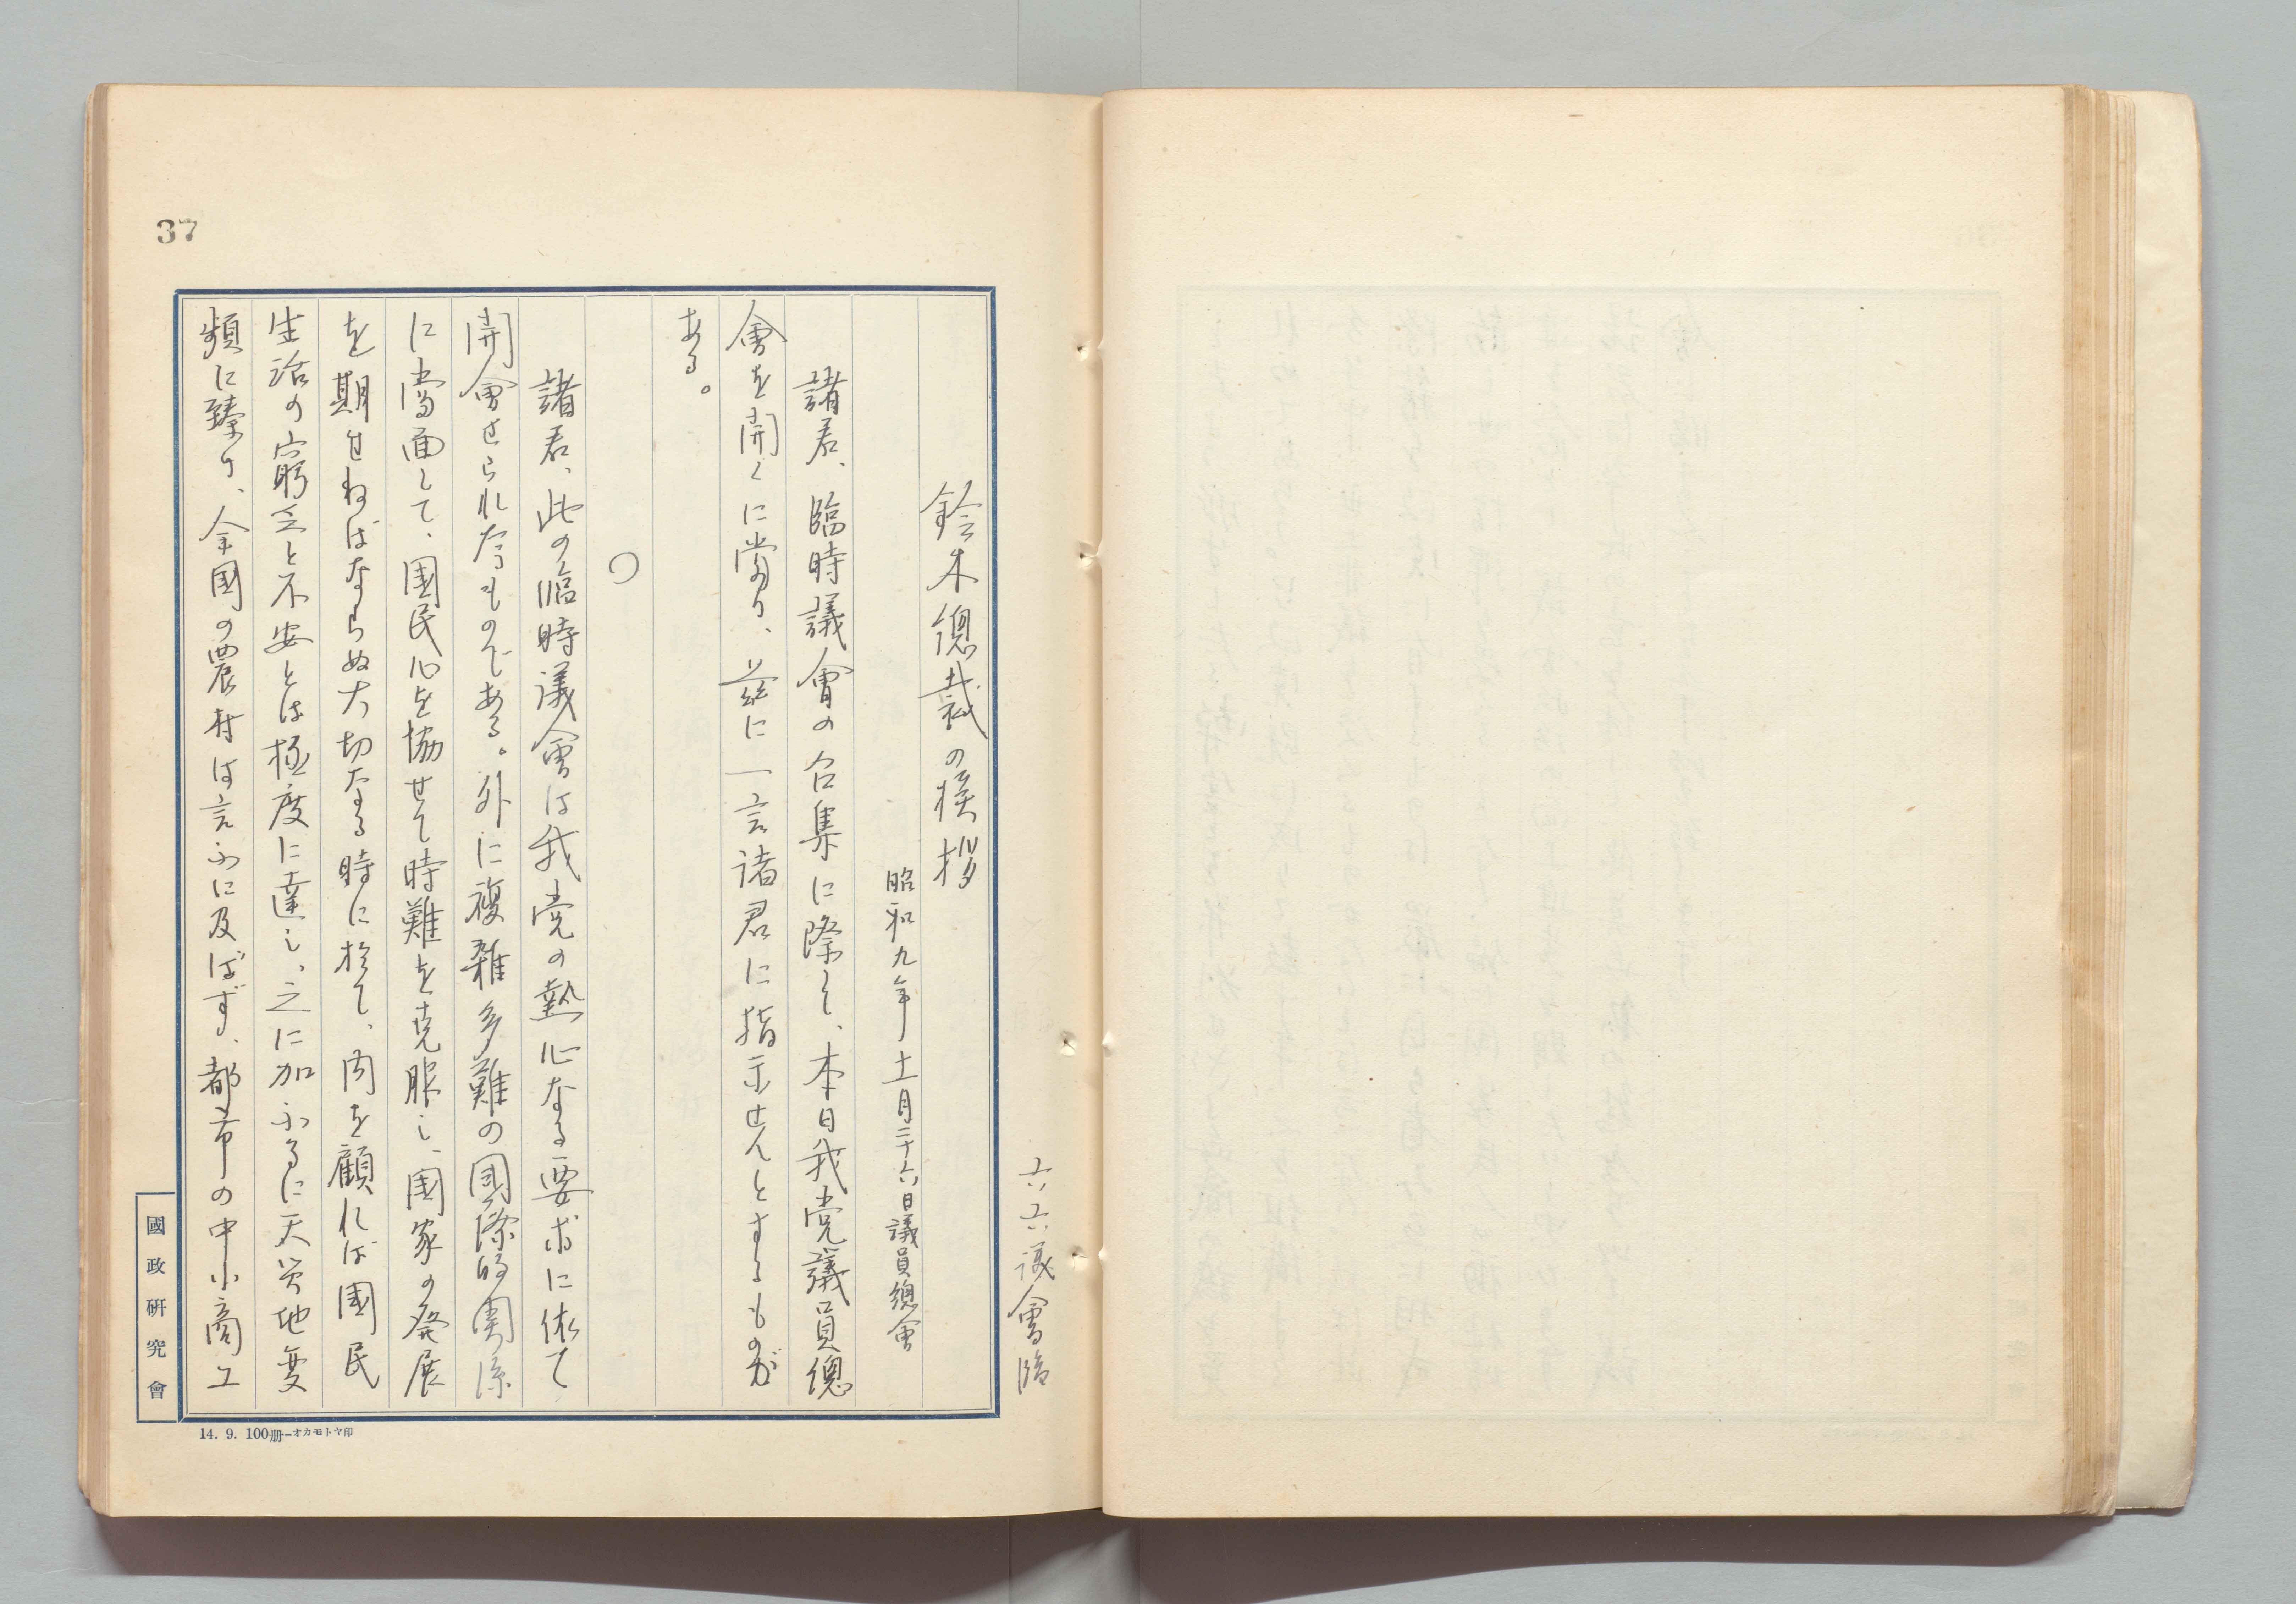 六六議會臨
鈴木總裁の挨拶
昭和九年十一月二十六日議員總會
諸君、臨時議會の召集に際して、本日我党議員總
會を開くに當り、茲に一言諸君に指示せんとするものが
ある。
○
諸君、此の臨時議會は我党の熱心なる要求に依て
開會せられたものである。外に複雜多難の国際的関係
に當面して、國民心を協せて時難を克服し、國家の発展
を期せねばならぬ大切なる時に於て、内を顧れば國民
生活の窮乏と不安とは極度に達し、之に加ふるに天災地変
頻に臻り、全國の農村は言ふに及ばず、都市の中小商工
37
國政研究會
14. 9. 100册—オカモトヤ印